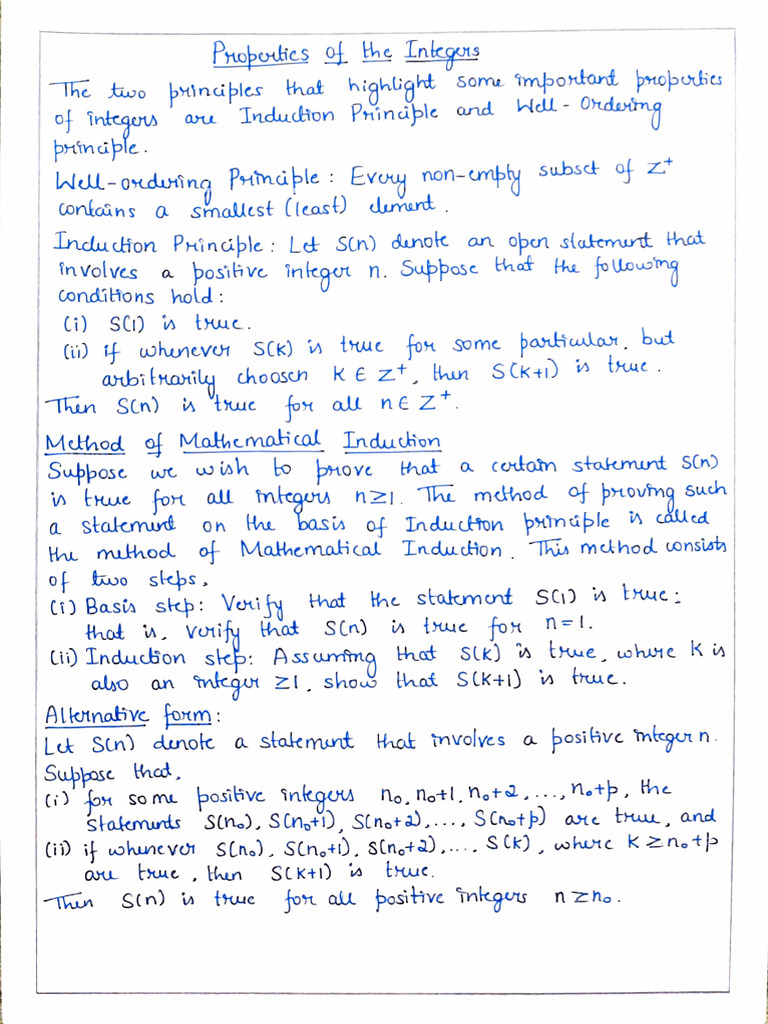 Properties of the Integers
The two principles that highlight some important properties
of integers are Induction Principle and Well-Ordering
principle.
Well-ordering Principle: Every non-empty subset of Z⁺
contains a smallest (least) element.
Induction Principle: Let S(n) denote an open statement that
involves a positive integer n. Suppose that the following
conditions hold:
(i) S(1) is true.
(ii) if whenever S(k) is true for some particular, but
arbitrarily choosen k ∈ Z⁺, then S(k+1) is true.
Then S(n) is true for all n ∈ Z⁺.
Method of Mathematical Induction
Suppose we wish to prove that a certain statement S(n)
is true for all integers n≥1. The method of proving such
a statement on the basis of Induction principle is called
the method of Mathematical Induction. This method consists
of two steps.
(i) Basis step: Verify that the statement S(1) is true;
that is, verify that S(n) is true for n=1.
(ii) Induction step: Assuming that S(k) is true, where k is
also an integer ≥1, show that S(k+1) is true.
Alternative form:
Let S(n) denote a statement that involves a positive integer n.
Suppose that,
(i) for some positive integers n₀, n₀+1, n₀+2, ..., n₀+p, the
statements S(n₀), S(n₀+1), S(n₀+2), ..., S(n₀+p) are true, and
(ii) if whenever S(n₀), S(n₀+1), S(n₀+2), ..., S(k), where k ≥ n₀+p
are true, then S(k+1) is true.
Then S(n) is true for all positive integers n ≥ n₀.